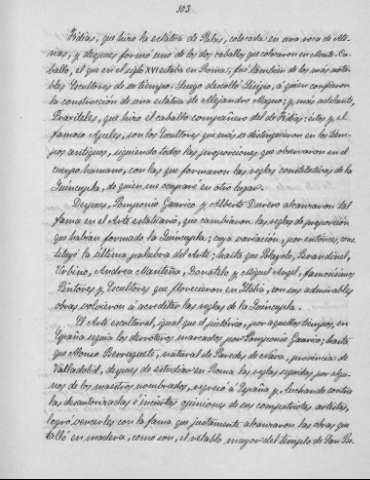 103.
Fidias, que hizo la estatua de Palas, colocada en una roca de Ate-
nas, y despues formó uno de los dos caballos que colocaron en Monte-Ca-
ballo, el que en el siglo XVI estaba en Roma; fué tambien de los más nota-
bles Escultores de su tiempo. Luego descolló Lisipo, á quien confiaron
la construcción de una estatua de Alejandro Magno; y más adelante,
Praxiteles, que hizo el caballo compañero del de Fidias: estos y el
famoso Apeles, son los Escultores que más se distinguieron en los tiem-
pos antiguos, siguiendo todos las proporciones que observaron en el
cuerpo humano, con las que formaron las reglas constitutivas de la
Quincupla, de quien me ocuparé en otro lugar.
Despues, Pomponio Gaurico y Alberto Durero alcanzaron tal
fama en el Arte estatuario, que cambiaron las reglas de proporción
que habían formado la Quincupla; cuya variación, por entonces, cons-
tituyó la última palabra del Arte; hasta que Polayolo, Brandinel,
Urbino, Andrea Manteña, Donatelo y Miguel Angel, famosísimos
Pintores y Escultores que florecieron en Italia, con sus admirables
obras volvieron á acreditar las reglas de la Quincupla.
El Arte escultural, igual que el pictórico, por aquellos tiempos, en
España seguía los derroteros marcados por Pomponio Gaurico; hasta
que Alonso Berruguete, natural de Paredes de Nava, provincia de
Valladolid, despues de estudiar en Roma las reglas seguidas por algu-
nos de los maestros nombrados, regresó á España y, luchando contra
las desautorizadas é inciertas opiniones de sus compatriotas artistas,
logró vencerles con la fama que justamente alcanzaron las obras que
talló en madera, como son, el retablo mayor del templo de San Be-